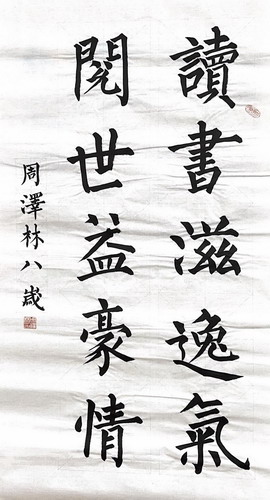 讀書滋逸氣
閱世益豪情
周澤林八歲